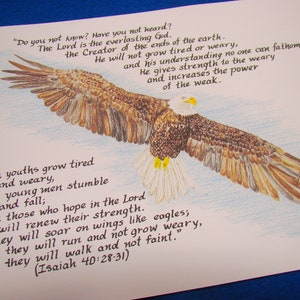 "Do you not know? Have you not heard?
The Lord is the everlasting God,
the Creator of the ends of the earth.
He will not grow tired or weary,
and his understanding no one can fathom
He gives strength to the weary
and increases the power
of the weak.
youths grow tired
and weary,
young men stumble
and fall;
those who hope in the Lord
will renew their strength.
They will soar on wings like eagles;
they will run and not grow weary,
they will walk and not faint."
(Isaiah 40:28-31)